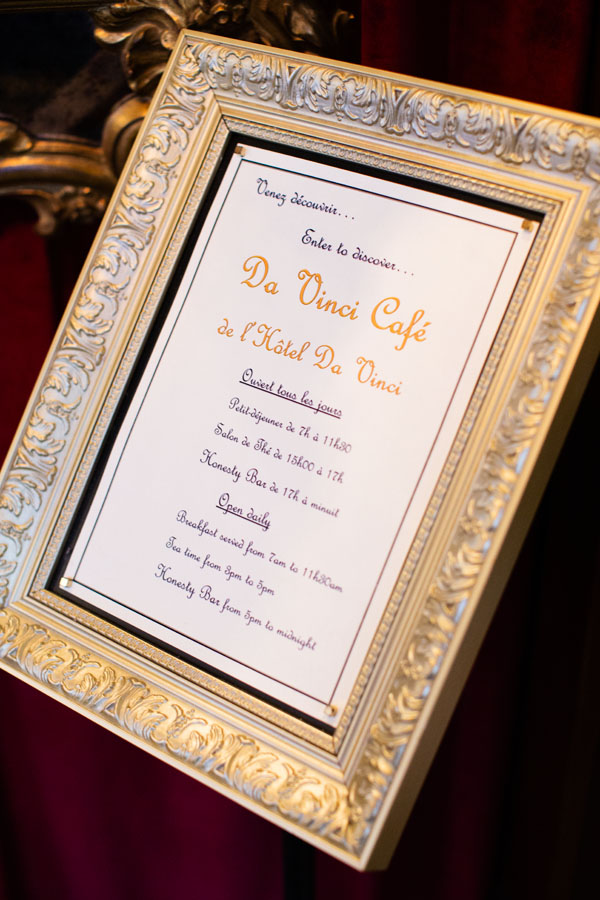 Venez découvrir...
Enter to discover...
Da Vinci Café
de l'Hôtel Da Vinci
Ouvert tous les jours
Petit-déjeuner de 7h à 11h30
Salon de Thé de 15h00 à 17h
Honesty Bar de 17h à minuit
Open daily
Breakfast served from 7am to 11h30am
Tea time from 3pm to 5pm
Honesty Bar from 5pm to midnight